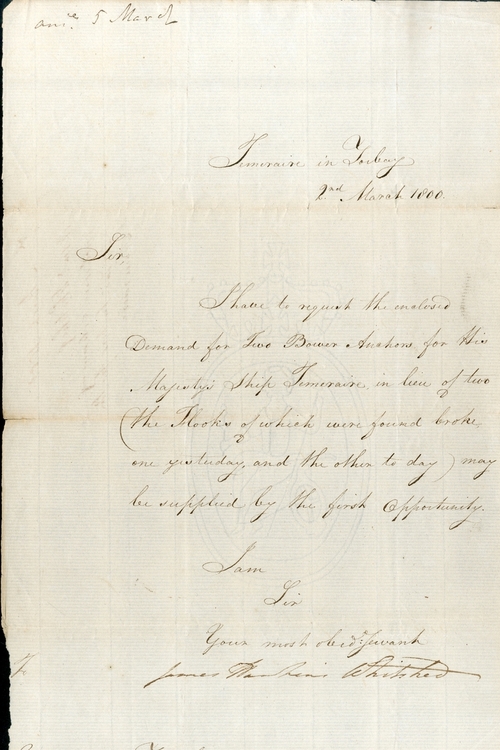 5 March
Temeraire in Torbay
2nd March 1800.
Sir
I have to request the enclosed
Demand for Two Bower Anchors, for His
Majesty's Ship Temeraire, in lieu of two
(the Flooks of which were found broke,
one yesterday, and the other to day) may
be supplied by the first Opportunity.
I am
Sir
Your most obedt. Servant
James Hawkins Whitshed